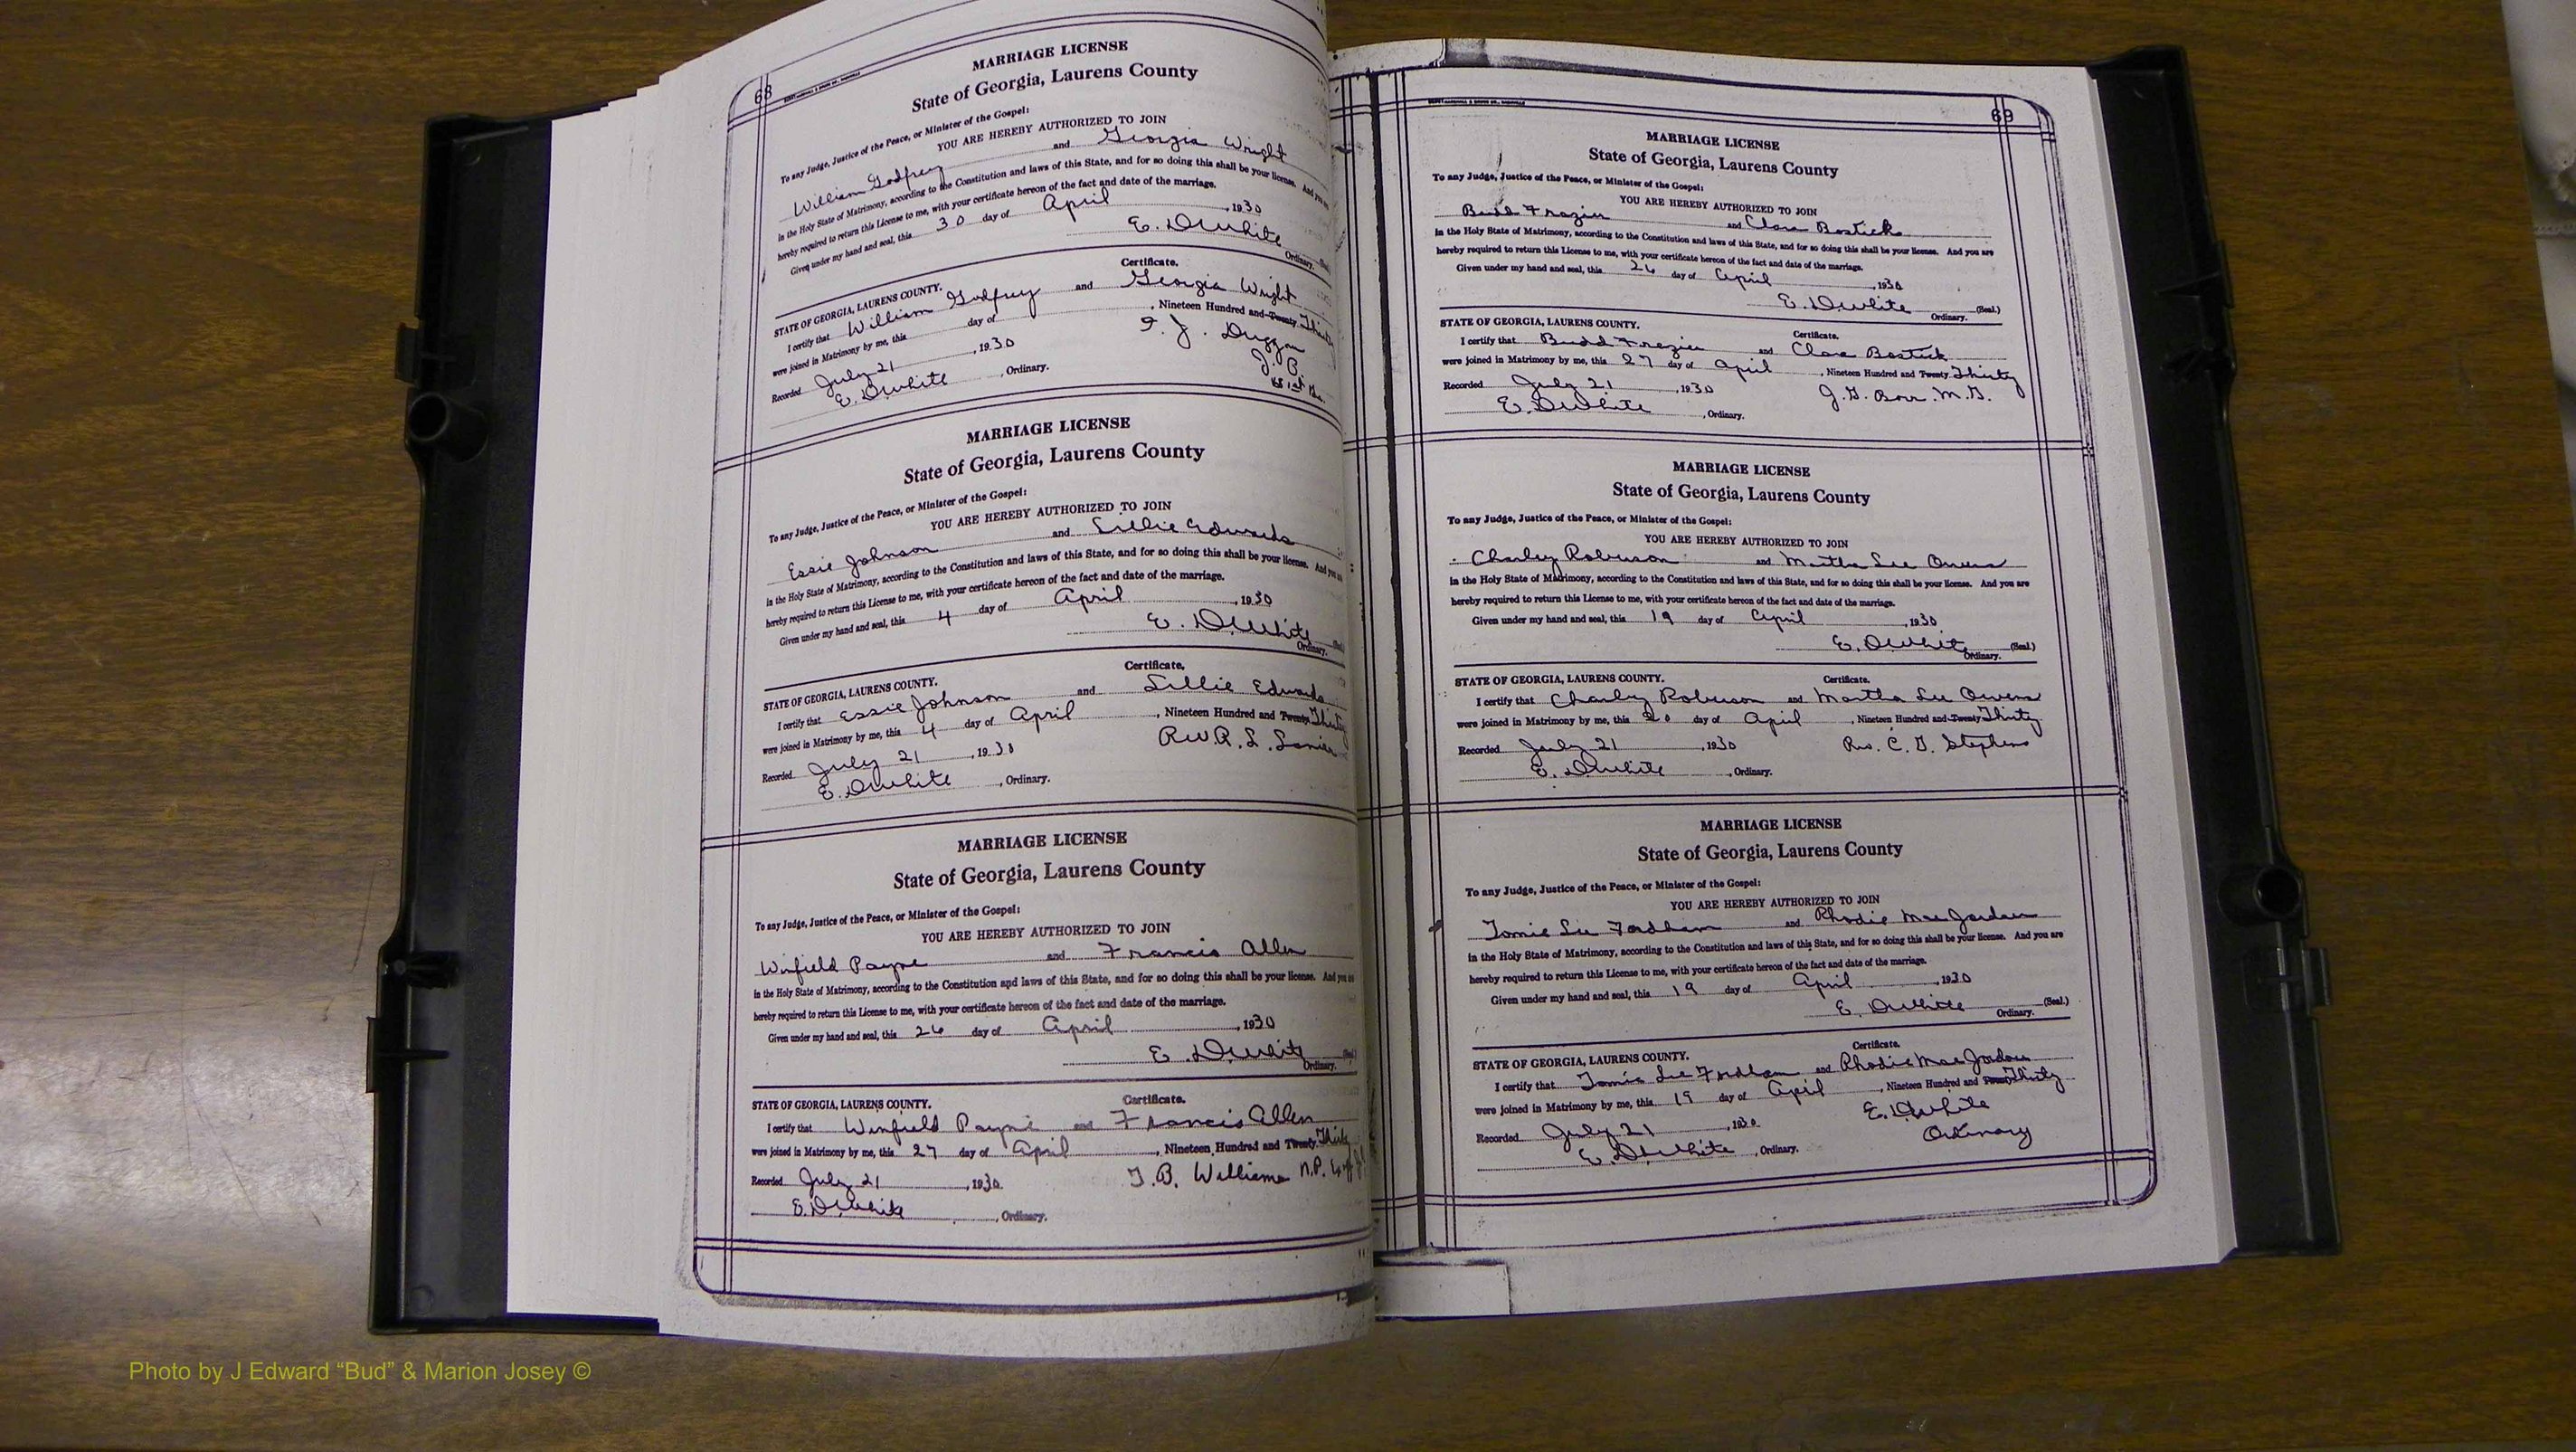 68
MARRIAGE LICENSE
State of Georgia, Laurens County
To any Judge, Justice of the Peace, or Minister of the Gospel:
YOU ARE HEREBY AUTHORIZED TO JOIN
William Godfrey and Georgia Wright
in the Holy State of Matrimony, according to the Constitution and laws of this State, and for so doing this shall be your license. And you are
hereby required to return this License to me, with your certificate hereon of the fact and date of the marriage.
Given under my hand and seal, this 30 day of April, 1930
E. D White
Ordinary. (Seal)
Certificate.
STATE OF GEORGIA, LAURENS COUNTY.
I certify that William Godfrey and Georgia Wright
were joined in Matrimony by me, this day of , Nineteen Hundred and Twenty Thirty
Recorded July 21, 1930
J. Duggan
E. D White, Ordinary.
J. P.
MARRIAGE LICENSE
State of Georgia, Laurens County
To any Judge, Justice of the Peace, or Minister of the Gospel:
YOU ARE HEREBY AUTHORIZED TO JOIN
Essie Johnson and Lillie Edwards
in the Holy State of Matrimony, according to the Constitution and laws of this State, and for so doing this shall be your license. And you are
hereby required to return this License to me, with your certificate hereon of the fact and date of the marriage.
Given under my hand and seal, this 4 day of April, 1930
E. D White (Seal)
Ordinary.
Certificate.
STATE OF GEORGIA, LAURENS COUNTY.
I certify that Essie Johnson and Lillie Edwards
were joined in Matrimony by me, this 4 day of April, Nineteen Hundred and Twenty Thirty
Recorded July 21, 1930 Rev. R. L. Lanier
E. D White, Ordinary.
MARRIAGE LICENSE
State of Georgia, Laurens County
To any Judge, Justice of the Peace, or Minister of the Gospel:
YOU ARE HEREBY AUTHORIZED TO JOIN
Winfield Payne and Francis Allen
in the Holy State of Matrimony, according to the Constitution and laws of this State, and for so doing this shall be your license. And you are
hereby required to return this License to me, with your certificate hereon of the fact and date of the marriage.
Given under my hand and seal, this 26 day of April, 1930
E. D White (Seal)
Ordinary.
Certificate.
STATE OF GEORGIA, LAURENS COUNTY.
I certify that Winfield Payne and Francis Allen
were joined in Matrimony by me, this 27 day of April, Nineteen Hundred and Twenty Thirty
Recorded July 21, 1930. T. B. Williams N.P.
E. D White, Ordinary.
69
MARRIAGE LICENSE
State of Georgia, Laurens County
To any Judge, Justice of the Peace, or Minister of the Gospel:
YOU ARE HEREBY AUTHORIZED TO JOIN
Budd Frazier and Clara Bostick
in the Holy State of Matrimony, according to the Constitution and laws of this State, and for so doing this shall be your license. And you are
hereby required to return this License to me, with your certificate hereon of the fact and date of the marriage.
Given under my hand and seal, this 26 day of April, 1930
E. D White (Seal.)
Ordinary.
STATE OF GEORGIA, LAURENS COUNTY. Certificate.
I certify that Budd Frazier and Clara Bostick
were joined in Matrimony by me, this 27 day of April, Nineteen Hundred and Twenty Thirty
Recorded July 21, 1930 J. G. Barr. M. G.
E. D White, Ordinary.
MARRIAGE LICENSE
State of Georgia, Laurens County
To any Judge, Justice of the Peace, or Minister of the Gospel:
YOU ARE HEREBY AUTHORIZED TO JOIN
Charley Roberson and Martha Lee Owens
in the Holy State of Matrimony, according to the Constitution and laws of this State, and for so doing this shall be your license. And you are
hereby required to return this License to me, with your certificate hereon of the fact and date of the marriage.
Given under my hand and seal, this 19 day of April, 1930
E. D White (Seal.)
Ordinary.
STATE OF GEORGIA, LAURENS COUNTY. Certificate.
I certify that Charley Roberson and Martha Lee Owens
were joined in Matrimony by me, this 20 day of April, Nineteen Hundred and Twenty Thirty
Recorded July 21, 1930 Rev. C. G. Stephens
E. D White, Ordinary.
MARRIAGE LICENSE
State of Georgia, Laurens County
To any Judge, Justice of the Peace, or Minister of the Gospel:
YOU ARE HEREBY AUTHORIZED TO JOIN
Tomie Lee Fordham and Rhodie Mae Jordan
in the Holy State of Matrimony, according to the Constitution and laws of this State, and for so doing this shall be your license. And you are
hereby required to return this License to me, with your certificate hereon of the fact and date of the marriage.
Given under my hand and seal, this 19 day of April, 1930
E. D White (Seal.)
Ordinary.
Certificate.
STATE OF GEORGIA, LAURENS COUNTY.
I certify that Tomie Lee Fordham and Rhodie Mae Jordan
were joined in Matrimony by me, this 19 day of April, Nineteen Hundred and Twenty Thirty
Recorded July 21, 1930. E. D White
E. D White, Ordinary. Ordinary
Photo by J Edward “Bud” & Marion Josey ©